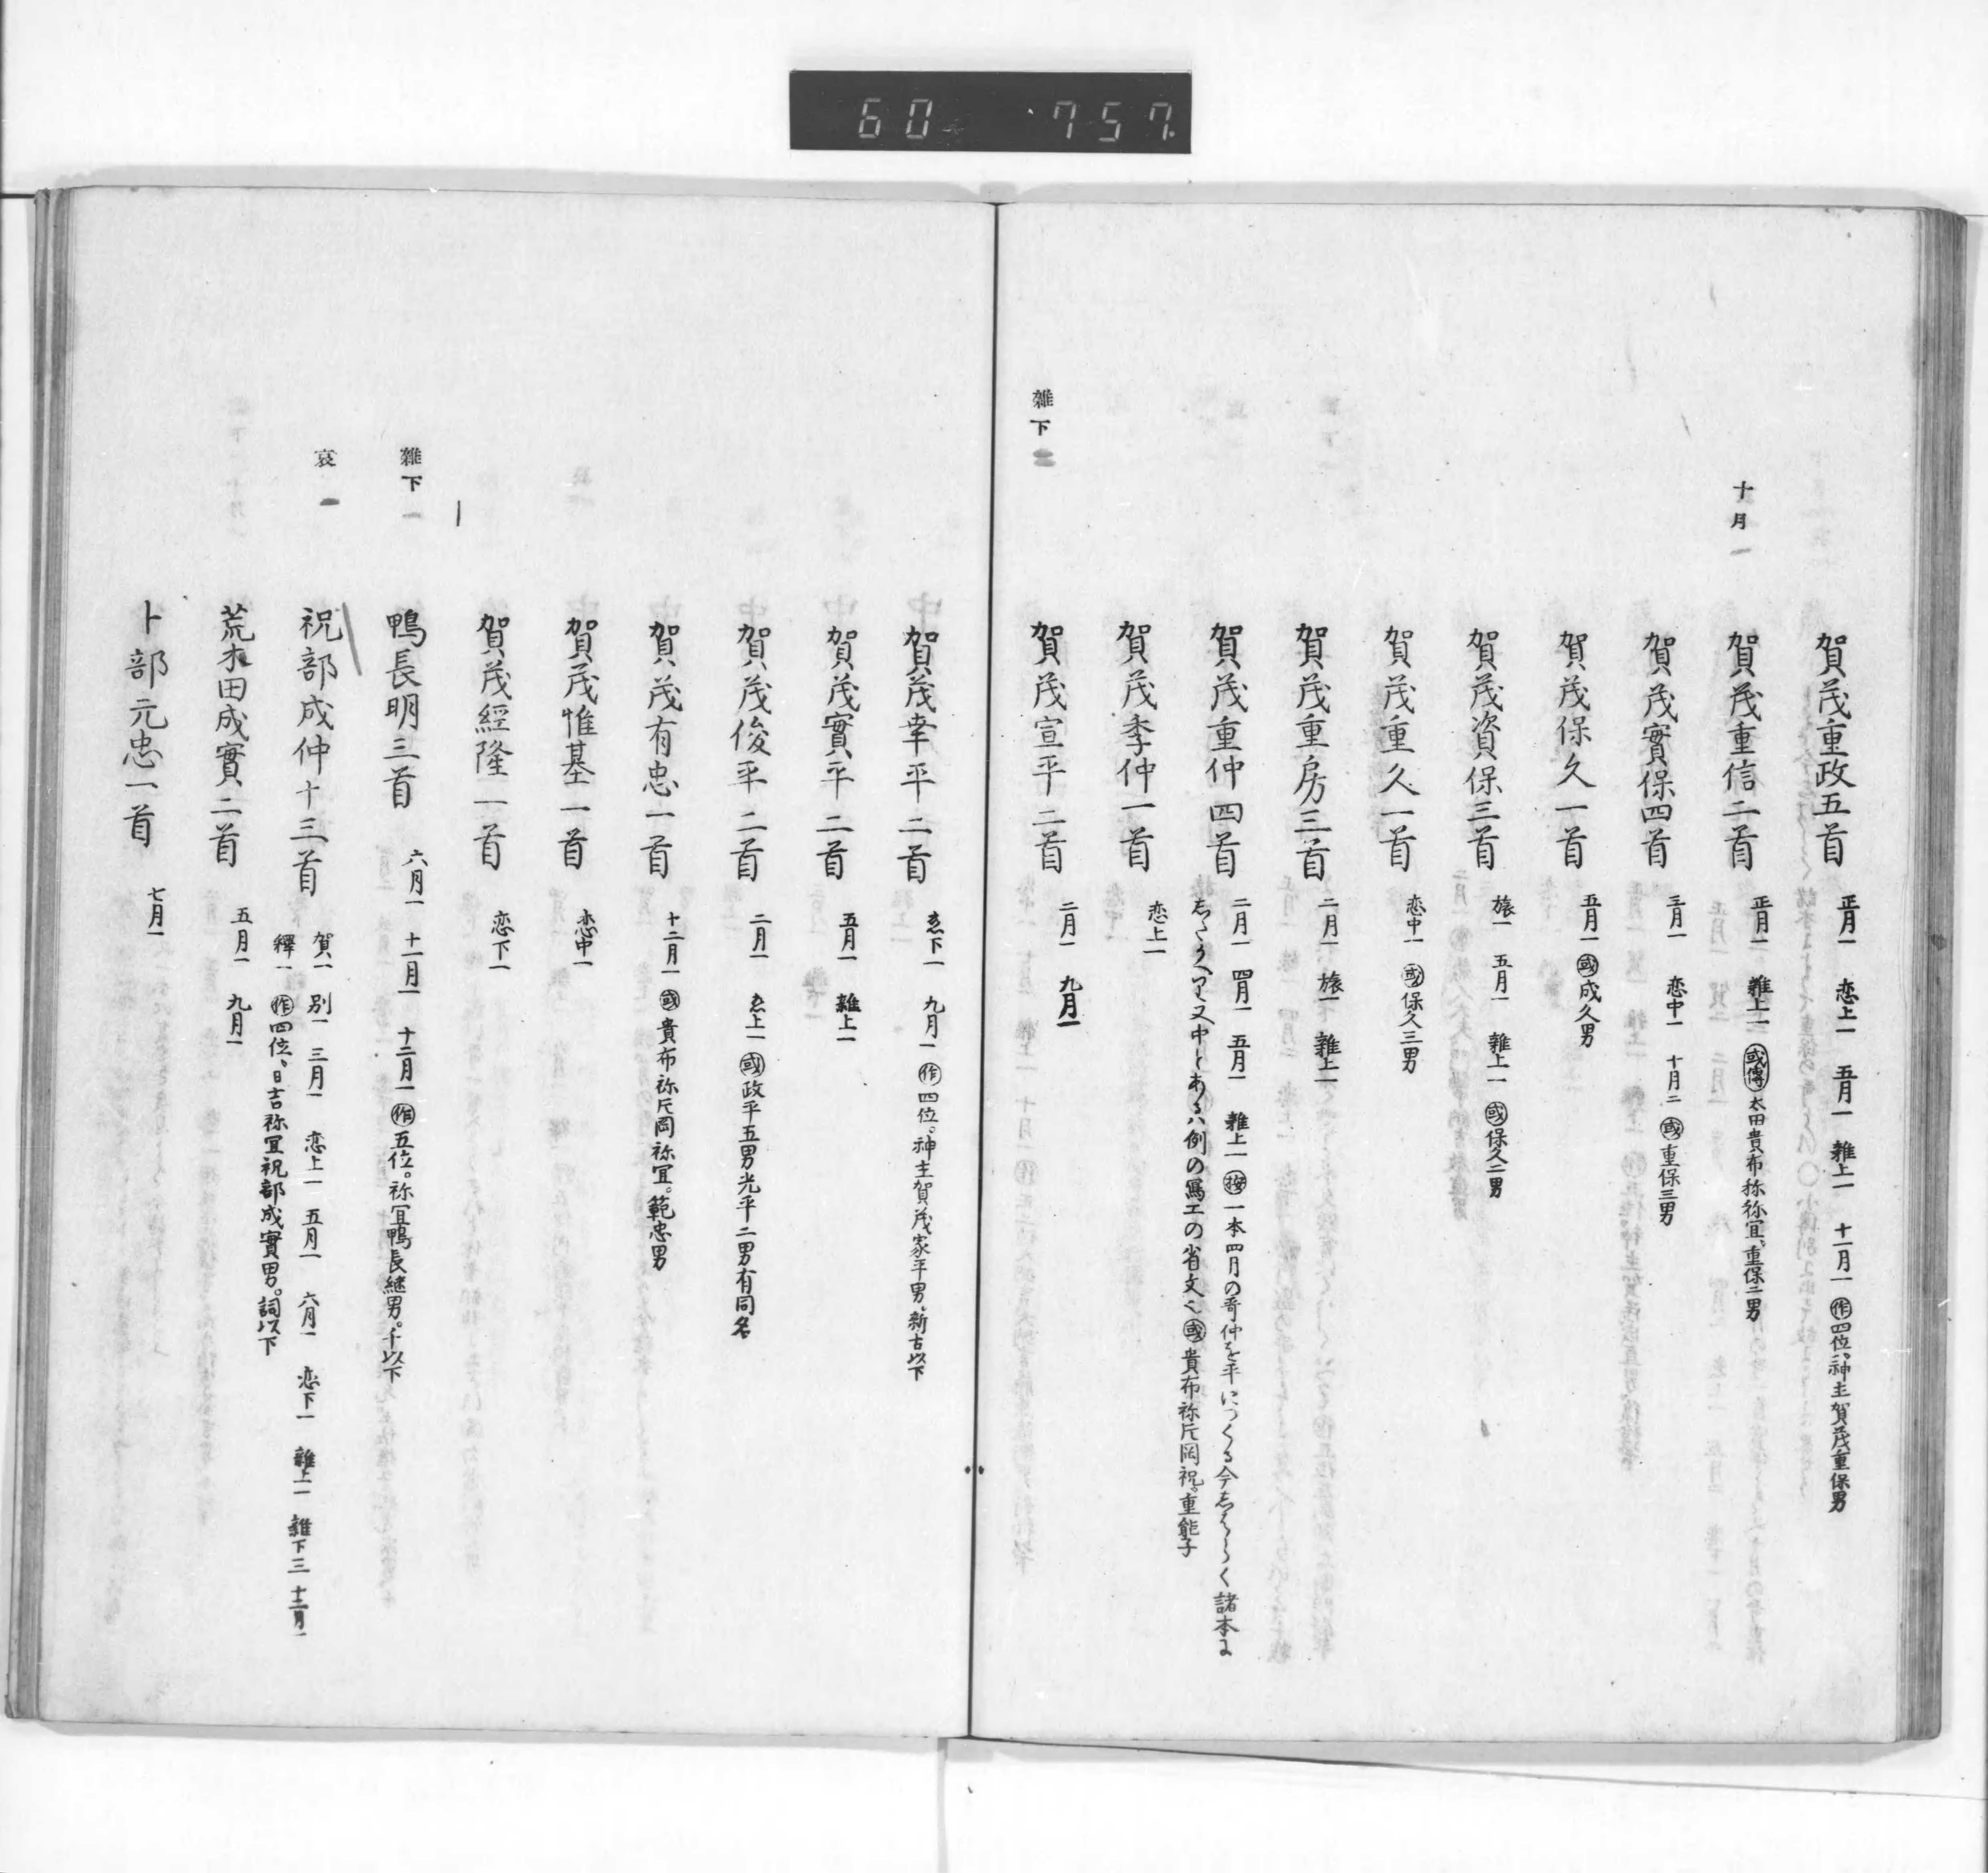 60 757
賀茂重政五首 正月一 恋上一 五月一 雜上一 十一月一 作四位。神主賀茂重保男
十月一
賀茂重信二首 正月一 雜上一 或傳太田貴布祢祢宜、重保二男
賀茂實保四首 三月一 恋中一 十月二 或重保三男
賀茂保久一首 五月一 或成久男
賀茂資保三首 旅一 五月一 雜上一 或保久二男
賀茂重久一首 恋中一 或保久三男
賀茂重房三首 二月一 旅一 雜上一
賀茂重仲四首 二月一 四月一 五月一 雜上一 按一本四月の哥仲を平につくる今志らく諸本に
志たかへり又中とあるハ例の寫工の省文也或貴布祢片岡祝。重能子
賀茂季仲一首 恋上一
雜下二
賀茂宣平二首 二月一 九月一
賀茂幸平二首 恋下一 九月一 作四位。神主賀茂家平男。新古以下
賀茂實平二首 五月一 雜上一
賀茂俊平二首 二月一 恋上一 或政平五男光平二男有同名
賀茂有忠一首 十二月一 或貴布祢片岡祢宜。範忠男
賀茂惟基一首 恋中一
賀茂經隆一首 恋下一
雜下一
鴨長明三首 六月一 十一月一 十二月一 作五位。祢宜鴨長継男。千以下
哀一
祝部成仲十三首 賀一 別一 三月一 恋上一 五月一 六月一 恋下一 雜上一 雜下三 十二月一
釋一 作四位、日吉祢宜祝部成實男。詞以下
荒木田成實二首 五月一 九月一
卜部元忠一首 七月一